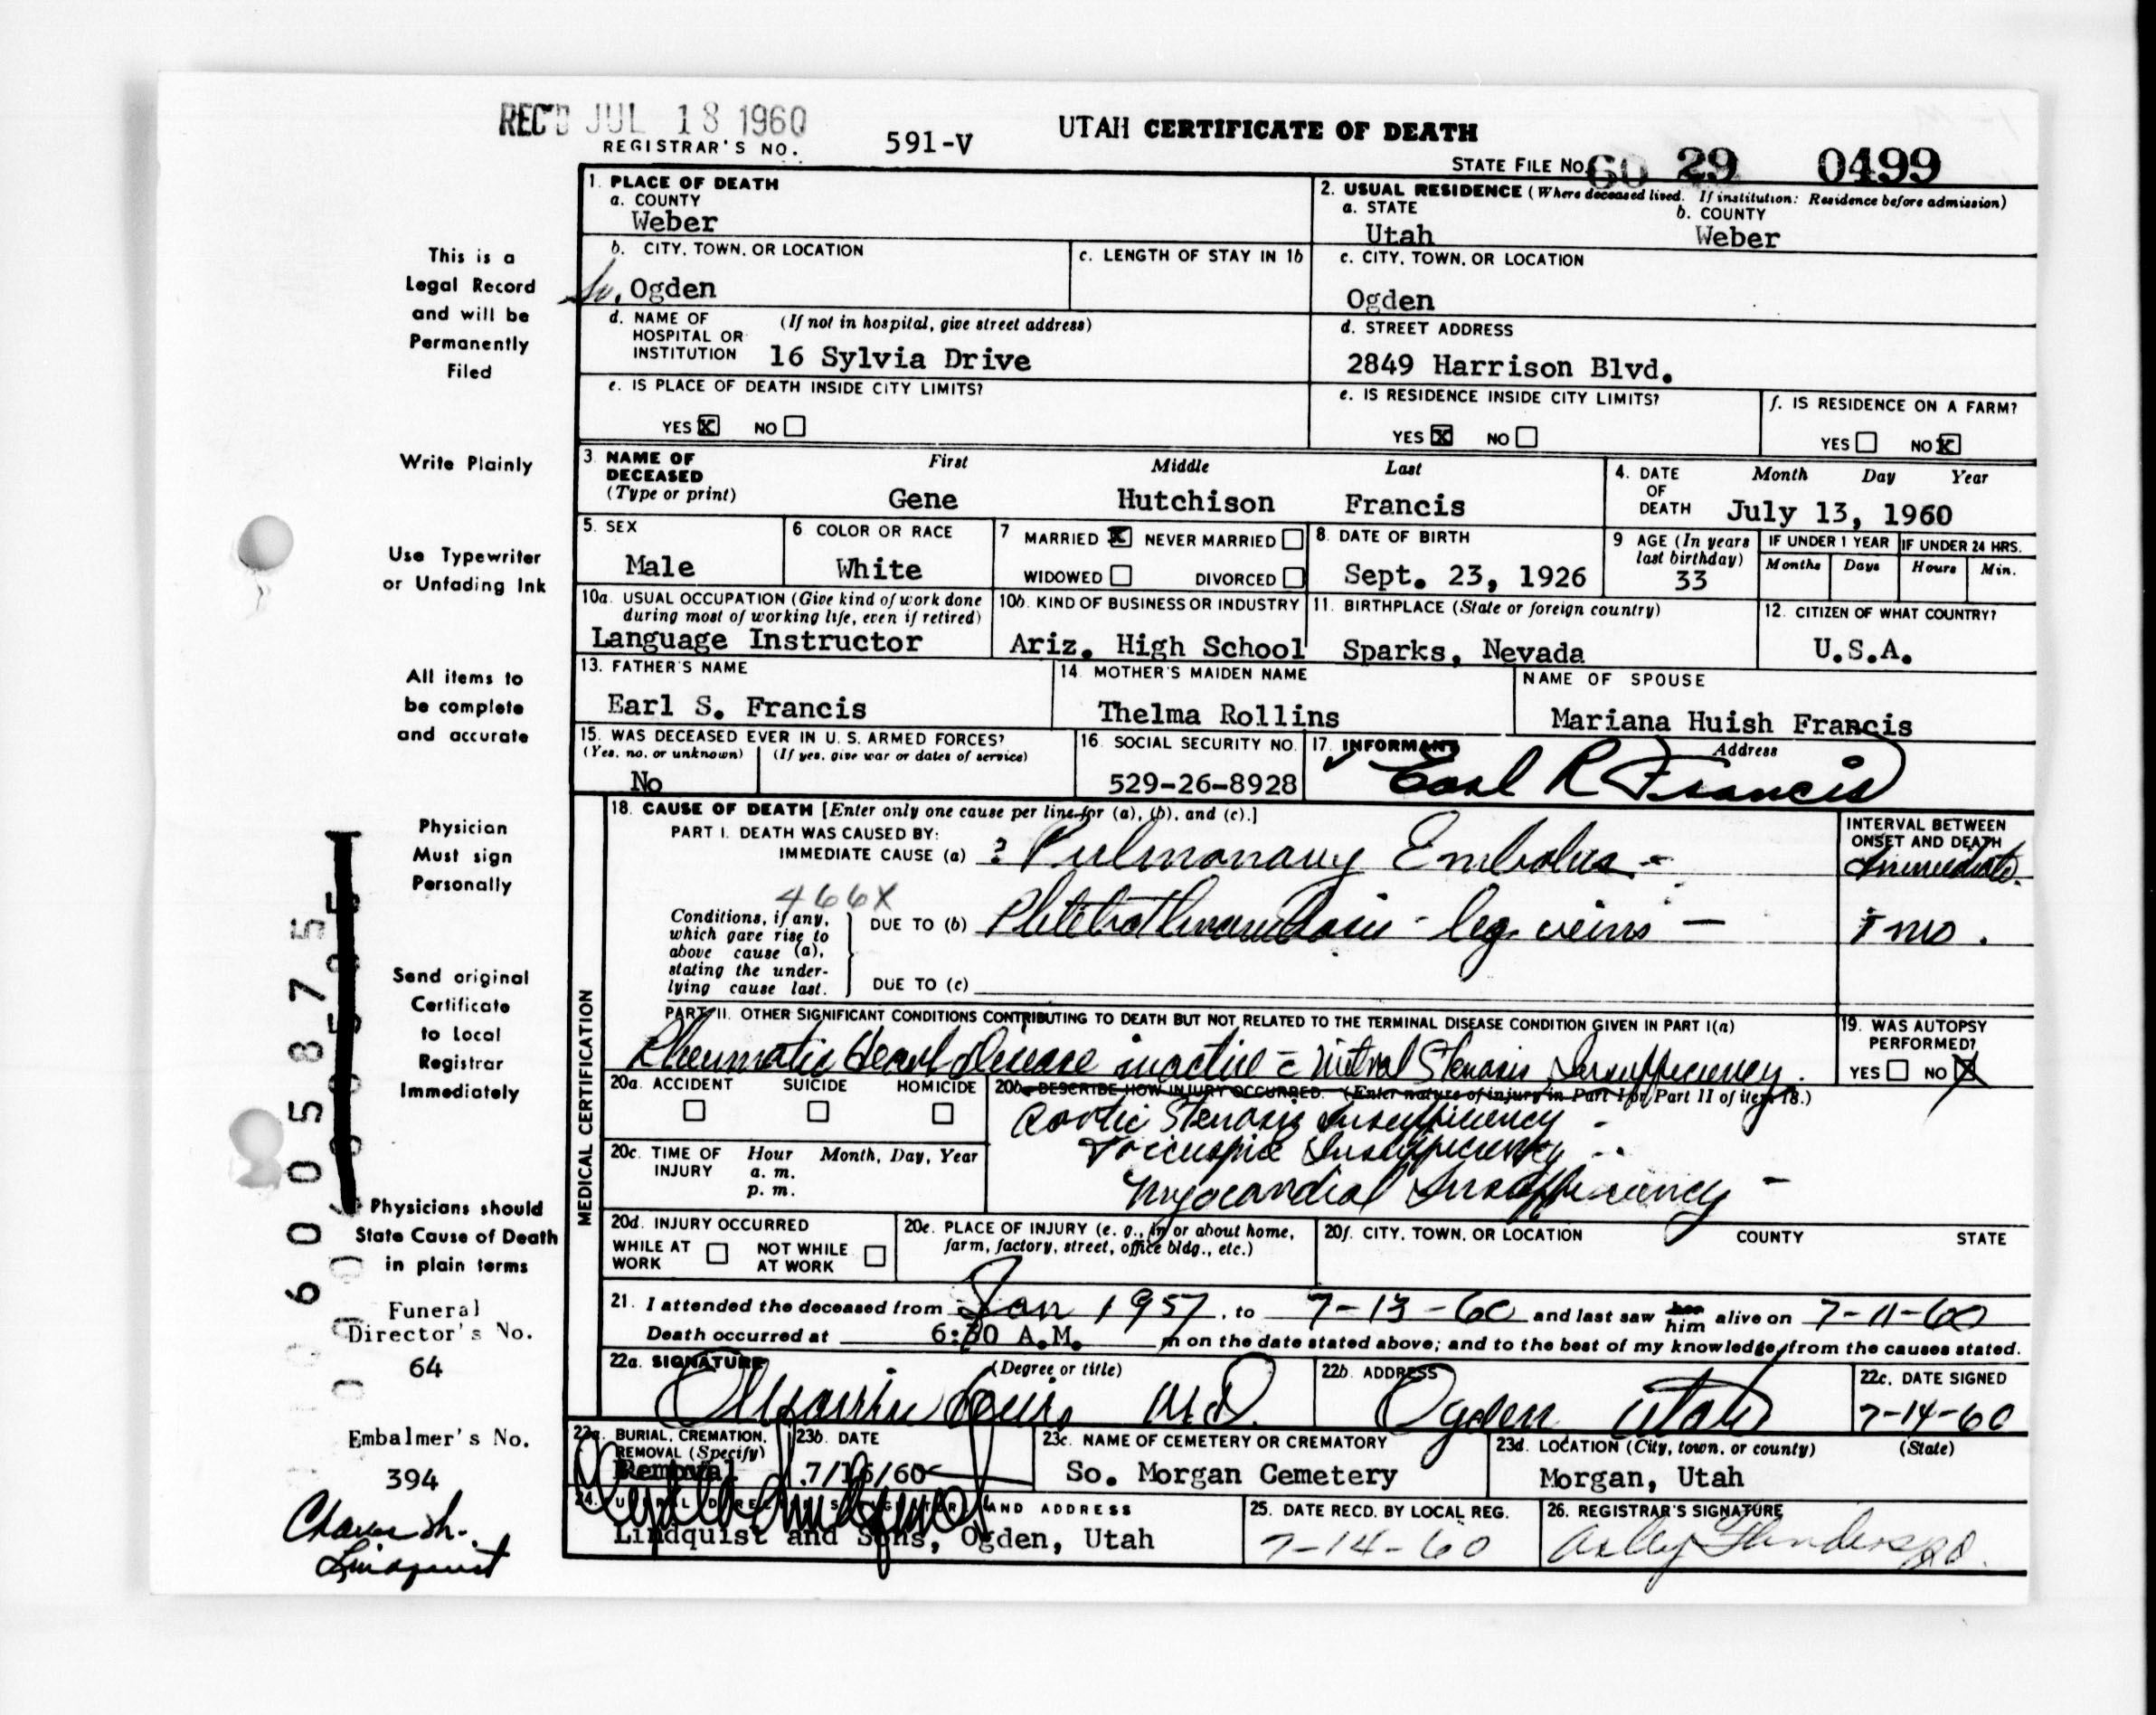 REC'D JUL 18 1960
REGISTRAR'S NO. 591-V
UTAH CERTIFICATE OF DEATH
STATE FILE NO. 60 29 0499
This is a
Legal Record
and will be
Permanently
Filed
Write Plainly
Use Typewriter
or Unfading Ink
All items to
be complete
and accurate
Physician
Must sign
Personally
Send original
Certificate
to Local
Registrar
Immediately
Physicians should
State Cause of Death
in plain terms
Funeral
Director's No.
64
Embalmer's No.
394
Lindquist
60058755
1. PLACE OF DEATH
a. COUNTY
Weber
2. USUAL RESIDENCE (Where deceased lived. If institution: Residence before admission)
a. STATE
Utah
b. COUNTY
Weber
b. CITY, TOWN, OR LOCATION
So. Ogden
c. LENGTH OF STAY IN 1b
c. CITY, TOWN, OR LOCATION
Ogden
d. NAME OF HOSPITAL OR INSTITUTION (If not in hospital, give street address)
16 Sylvia Drive
d. STREET ADDRESS
2849 Harrison Blvd.
e. IS PLACE OF DEATH INSIDE CITY LIMITS?
YES X NO
e. IS RESIDENCE INSIDE CITY LIMITS?
YES X NO
f. IS RESIDENCE ON A FARM?
YES NO X
3. NAME OF DECEASED (Type or print)
First Middle Last
Gene Hutchison Francis
4. DATE OF DEATH
Month Day Year
July 13, 1960
5. SEX
Male
6 COLOR OR RACE
White
7 MARRIED X NEVER MARRIED
WIDOWED DIVORCED
8. DATE OF BIRTH
Sept. 23, 1926
9 AGE (In years last birthday)
33
IF UNDER 1 YEAR
Months Days
IF UNDER 24 HRS.
Hours Min.
10a. USUAL OCCUPATION (Give kind of work done during most of working life, even if retired)
Language Instructor
10b. KIND OF BUSINESS OR INDUSTRY
Ariz. High School
11. BIRTHPLACE (State or foreign country)
Sparks, Nevada
12. CITIZEN OF WHAT COUNTRY?
U.S.A.
13. FATHER'S NAME
Earl S. Francis
14. MOTHER'S MAIDEN NAME
Thelma Rollins
NAME OF SPOUSE
Mariana Huish Francis
15. WAS DECEASED EVER IN U. S. ARMED FORCES?
(Yes, no, or unknown) (If yes, give war or dates of service)
No
16. SOCIAL SECURITY NO.
529-26-8928
17. INFORMANT Address
Earl R Francis
MEDICAL CERTIFICATION
18. CAUSE OF DEATH [Enter only one cause per line for (a), (b), and (c).]
PART I. DEATH WAS CAUSED BY:
IMMEDIATE CAUSE (a) ? Pulmonary Embolus -
INTERVAL BETWEEN ONSET AND DEATH
Immediate.
466X
Conditions, if any, which gave rise to above cause (a), stating the underlying cause last.
DUE TO (b) Phlebothrombosis - leg veins -
mo.
DUE TO (c)
PART II. OTHER SIGNIFICANT CONDITIONS CONTRIBUTING TO DEATH BUT NOT RELATED TO THE TERMINAL DISEASE CONDITION GIVEN IN PART I(a)
Rheumatic Heart disease inactive = Mitral Stenosis Insufficiency.
19. WAS AUTOPSY PERFORMED?
YES NO X
20a. ACCIDENT SUICIDE HOMICIDE
20b. DESCRIBE HOW INJURY OCCURRED. (Enter nature of injury in Part I or Part II of item 18.)
Aortic Stenosis Insufficiency -
Tricuspid Insufficiency -
Myocardial Insufficiency -
20c. TIME OF INJURY Hour Month, Day, Year
a. m.
p. m.
20d. INJURY OCCURRED
WHILE AT WORK NOT WHILE AT WORK
20e. PLACE OF INJURY (e. g., in or about home, farm, factory, street, office bldg., etc.)
20f. CITY, TOWN, OR LOCATION COUNTY STATE
21. I attended the deceased from Jan 1957, to 7-13-60 and last saw her him alive on 7-11-60
Death occurred at A.M. m on the date stated above; and to the best of my knowledge, from the causes stated.
22a. SIGNATURE (Degree or title)
M.D.
22b. ADDRESS
Ogden Utah
22c. DATE SIGNED
7-14-60
23a. BURIAL, CREMATION, REMOVAL (Specify)
Removal
23b. DATE
7/16/60
23c. NAME OF CEMETERY OR CREMATORY
So. Morgan Cemetery
23d. LOCATION (City, town, or county) (State)
Morgan, Utah
24. FUNERAL DIRECTOR'S SIGNATURE AND ADDRESS
Lindquist and Sons, Ogden, Utah
25. DATE RECD. BY LOCAL REG.
7-14-60
26. REGISTRAR'S SIGNATURE